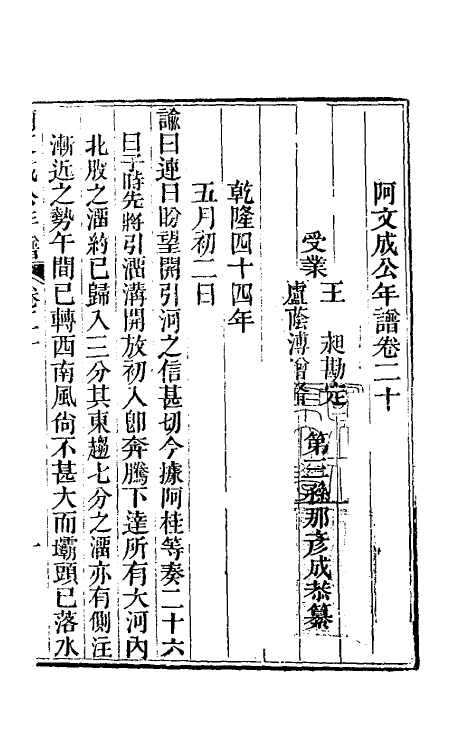 阿文成公年譜卷二十
受業
王　昶勘定
盧蔭溥增脩
第三孫那彥成恭纂
乾隆四十四年
五月初二日
諭曰連日盼望開引河之信甚切今據阿桂等奏二十六
日子時先將引溜溝開放初入即奔騰下達所有大河內
北股之溜約已歸入三分其東趨七分之溜亦有側注
漸近之勢午間已轉西南風尙不甚大而壩頭已落水